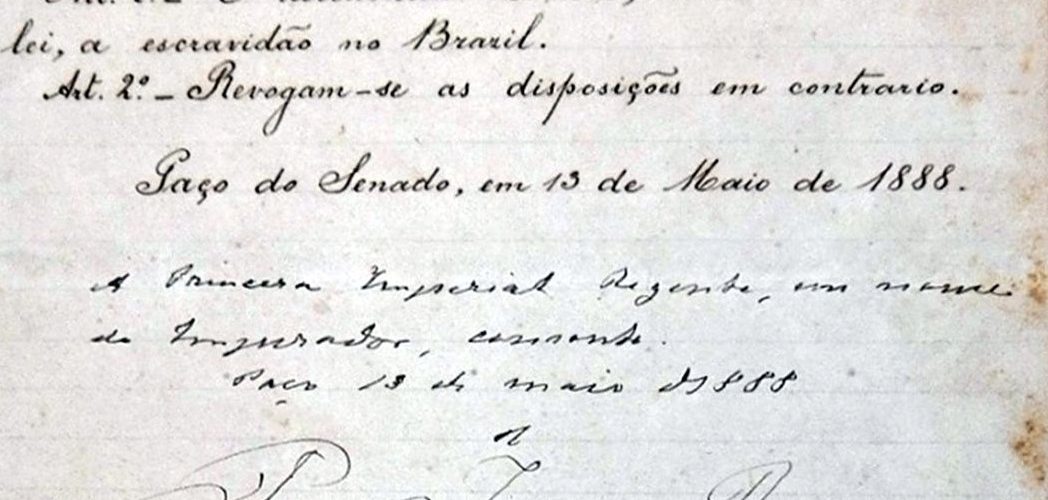 lei, a escravidão no Brazil.
Art. 2º - Revogam-se as disposições em contrario.
Paço do Senado, em 13 de Maio de 1888.
A Princeza Imperial Regente, em nome
do Imperador, consente.
Paço 13 de maio de 1888